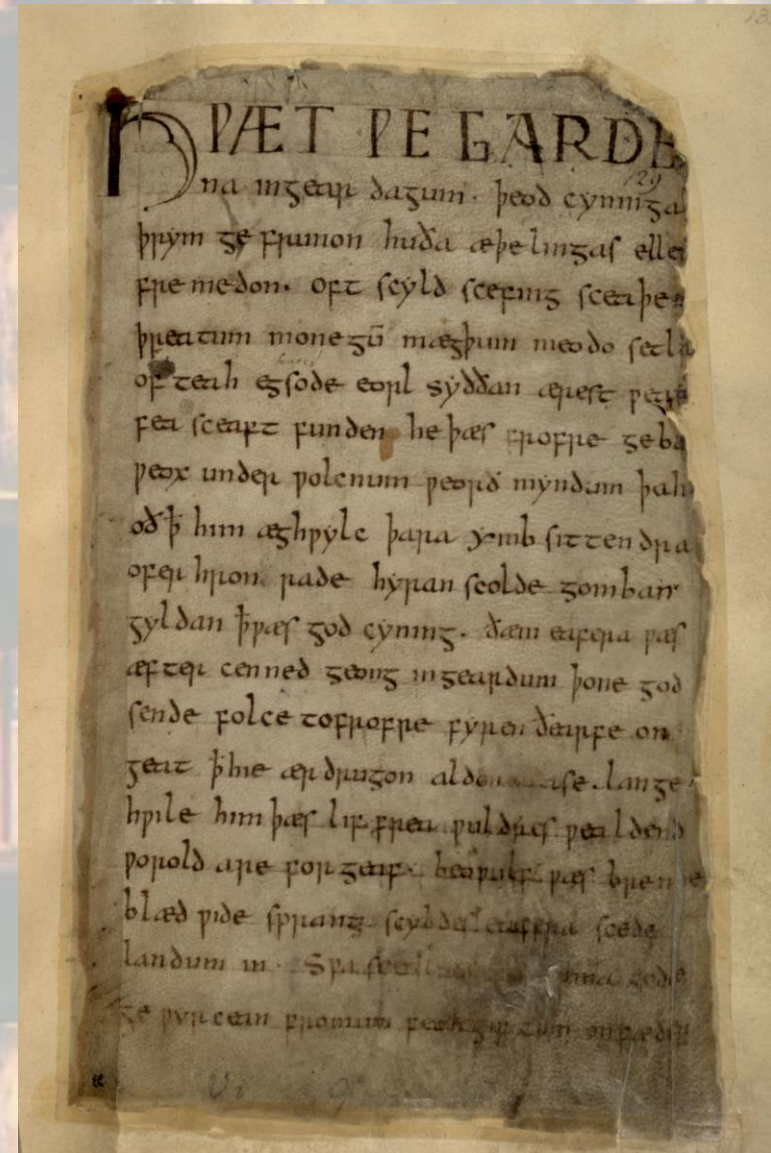 HǷÆT ǷE GARDE
na ingear dagum. þeod cyninga
þrym ge frunon huða æþelingas elle
fre medon. oft scyld scefing sceaþe
þreatum monegū mægþum meodo setla
of teah egsode eorl syððan ærest ƿe
fea sceaft funden he þæs frofre geba
ƿeox under ƿolcnum ƿeorð myndum þah
oð ꝥ him æghƿylc þara ymb sittendra
ofer hron rade hyran scolde gomban
gyldan ꝥ ƿæs god cyning. ðæm eafera ƿæs
æfter cenned geong in geardum þone god
sende folce tofrofre fyren ðearfe on
geat ꝥ hie ær drugon aldor ase. lange
hƿile him þæs lif frea ƿuldres ƿealdend
ƿorold are for geaf. beoƿulf ƿæs breme
blæd ƿide sprang scyldes eafera scede
landum in. Sƿa sceal uma gode
ge ƿyrcean fromum feoh giftum on fæder
129